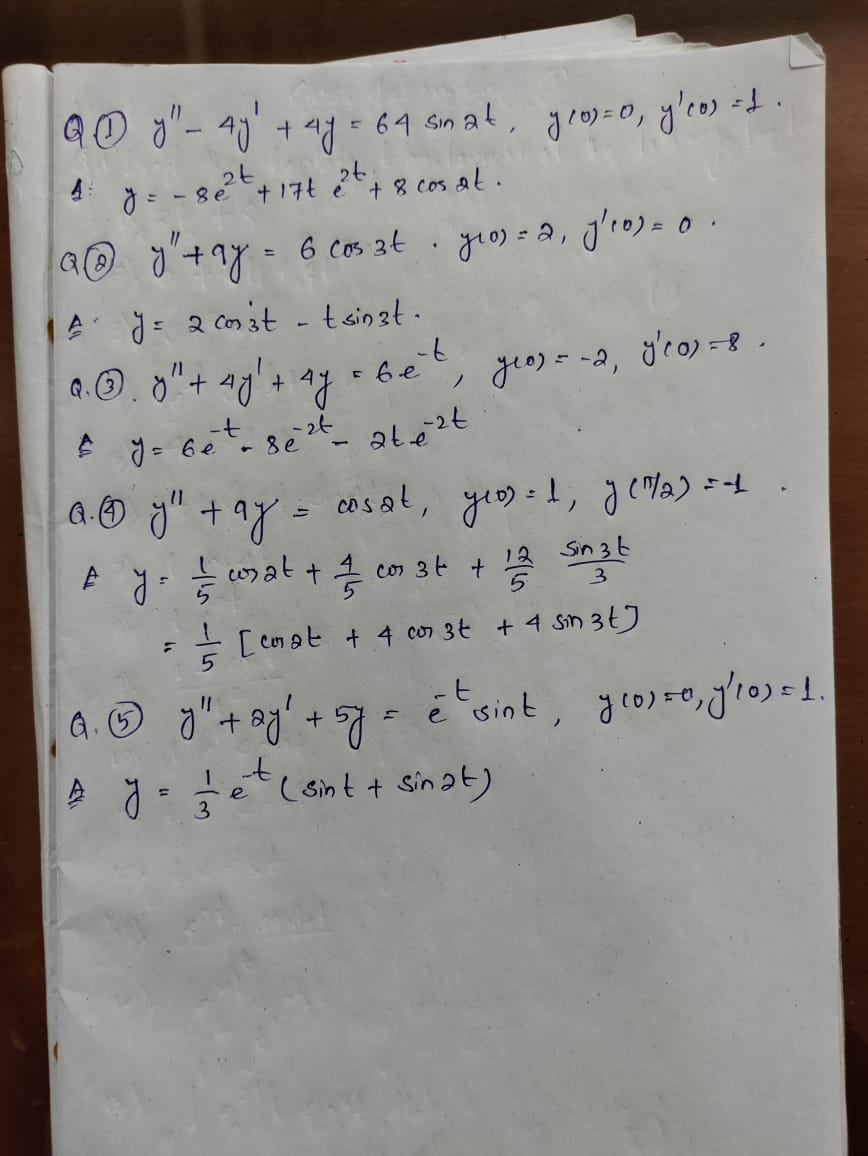 Q ① y" - 4y' + 4y = 64 sin 2t, y(0)=0, y'(0)=1.
A: y = -8e^{2t} + 17t e^{2t} + 8 cos 2t.
Q ② y" + 9y = 6 cos 3t. y(0) = 2, y'(0) = 0.
A. y = 2 cos 3t - t sin 3t.
Q. ③. y" + 4y' + 4y = 6e^{-t}, y(0) = -2, y'(0) = 8.
A y = 6e^{-t} - 8e^{-2t} - 2t e^{-2t}
Q. ④ y" + 9y = cos 2t, y(0) = 1, y(π/2) = -1.
A y = 1/5 cos 2t + 4/5 cos 3t + 12/5 sin 3t/3
= 1/5 [cos 2t + 4 cos 3t + 4 sin 3t]
Q. ⑤ y" + 2y' + 5y = e^{-t} sin t, y(0)=0, y'(0)=1.
A y = 1/3 e^{-t} (sin t + sin 2t)